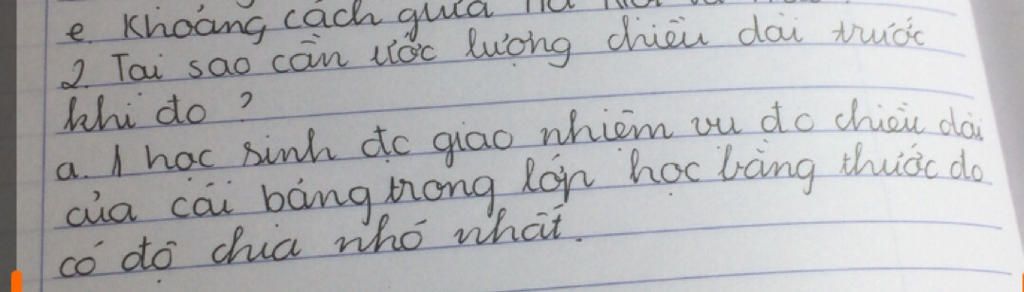 e. Khoảng cách giữa
2. Tại sao cần ước lượng chiều dài trước
khi đo?
a. 1 học sinh đc giao nhiệm vụ đo chiều dài
của cái bảng trong lớp học bằng thước đo
có độ chia nhỏ nhất.